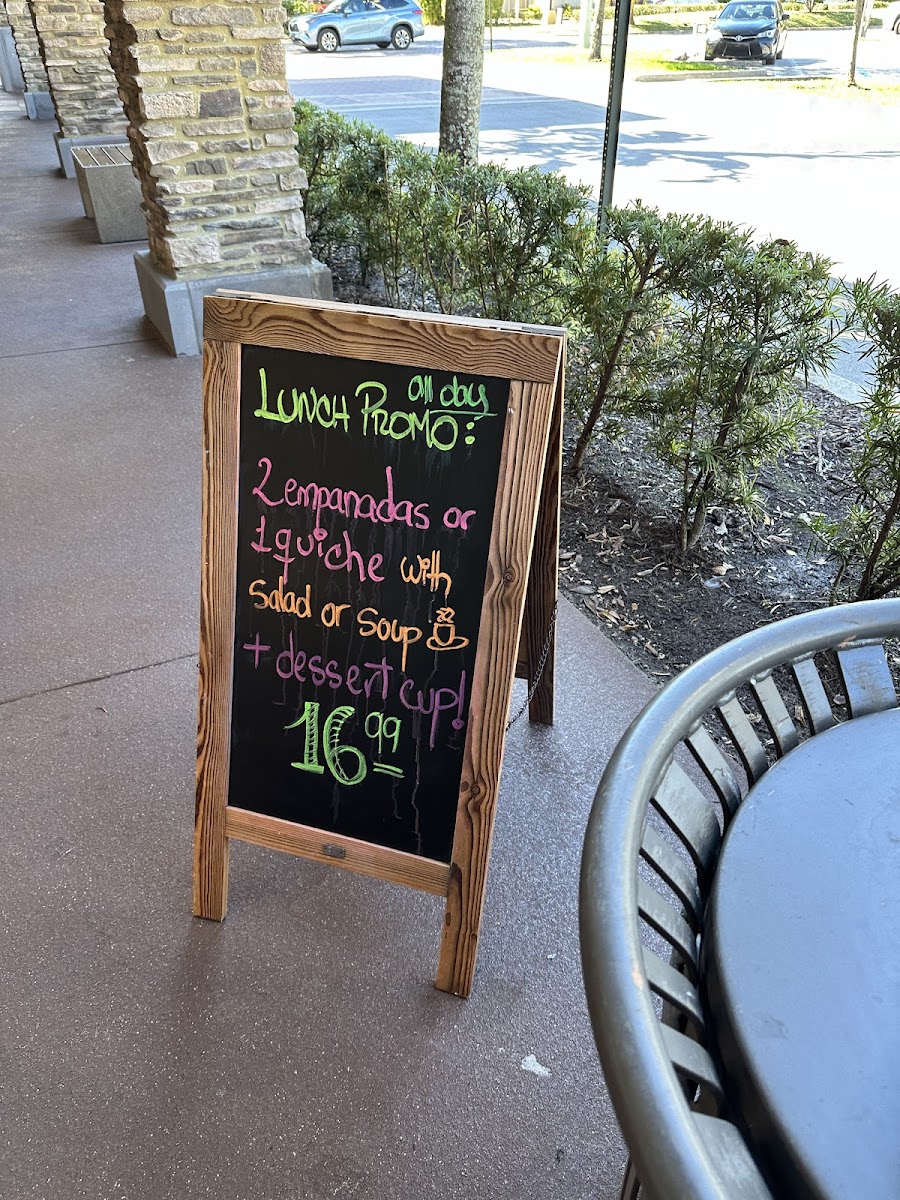 all day
LUNCH PROMO:
2 empanadas or
1 quiche with
salad or soup
+ dessert cup!
16 99